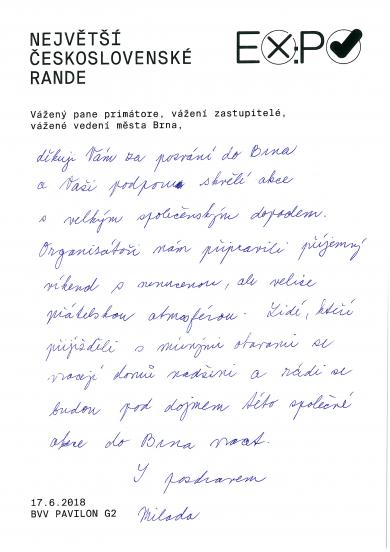 NEJVĚTŠÍ
ČESKOSLOVENSKÉ
RANDE
EXPO
Vážený pane primátore, vážení zastupitelé,
vážené vedení města Brna,
děkuji Vám za pozvání do Brna
a Vaši podporu skvělé akce
s velkým společenským dopadem.
Organizátoři nám připravili příjemný
víkend s nenucenou, ale velice
přátelskou atmosférou. Lidé, kteří
přijížděli s mírnými obavami se
vracejí domů nadšeni a rádi se
budou pod dojmem této společné
akce do Brna vracet.
S pozdravem
Milada
17.6.2018
BVV PAVILON G2